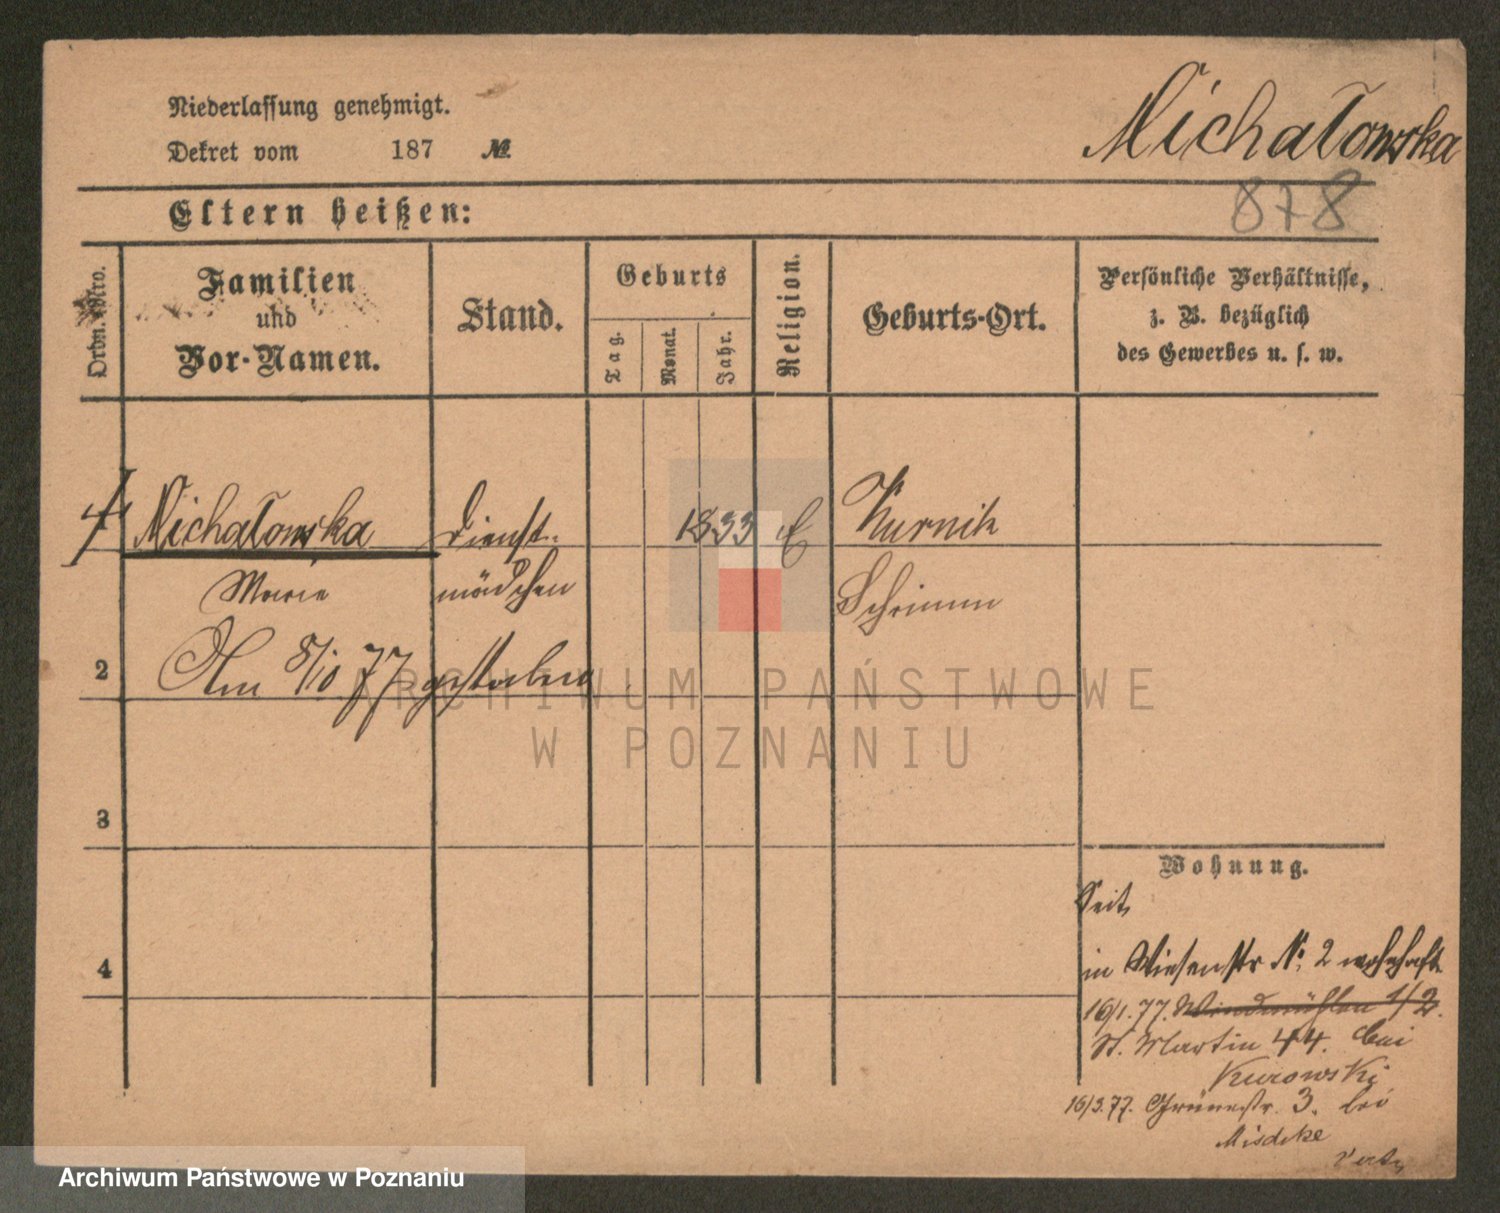 Niederlassung genehmigt.
Dekret vom 187 №
Michałowska
878
Eltern heißen:
Ordn. Nro.
Familien
und
Vor-Namen.
Stand.
Geburts
Tag.
Monat.
Jahr.
Religion.
Geburts-Ort.
Persönliche Verhältnisse,
z. B. bezüglich
des Gewerbes u. s. w.
Michałowska Dienst- 1833 C Kurnik
Marie mädchen Schrimm
2 Am 8/10 77 gestorben
ARCHIWUM PAŃSTWOWE
W POZNANIU
3
Wohnung.
Seit
4
in Wiesenstr № 2 wohnhaft
16/1. 77. Windmühlen 1/2.
St. Martin 44. bei
Kurowski
16/3. 77. Grünestr. 3. bei
Archiwum Państwowe w Poznaniu